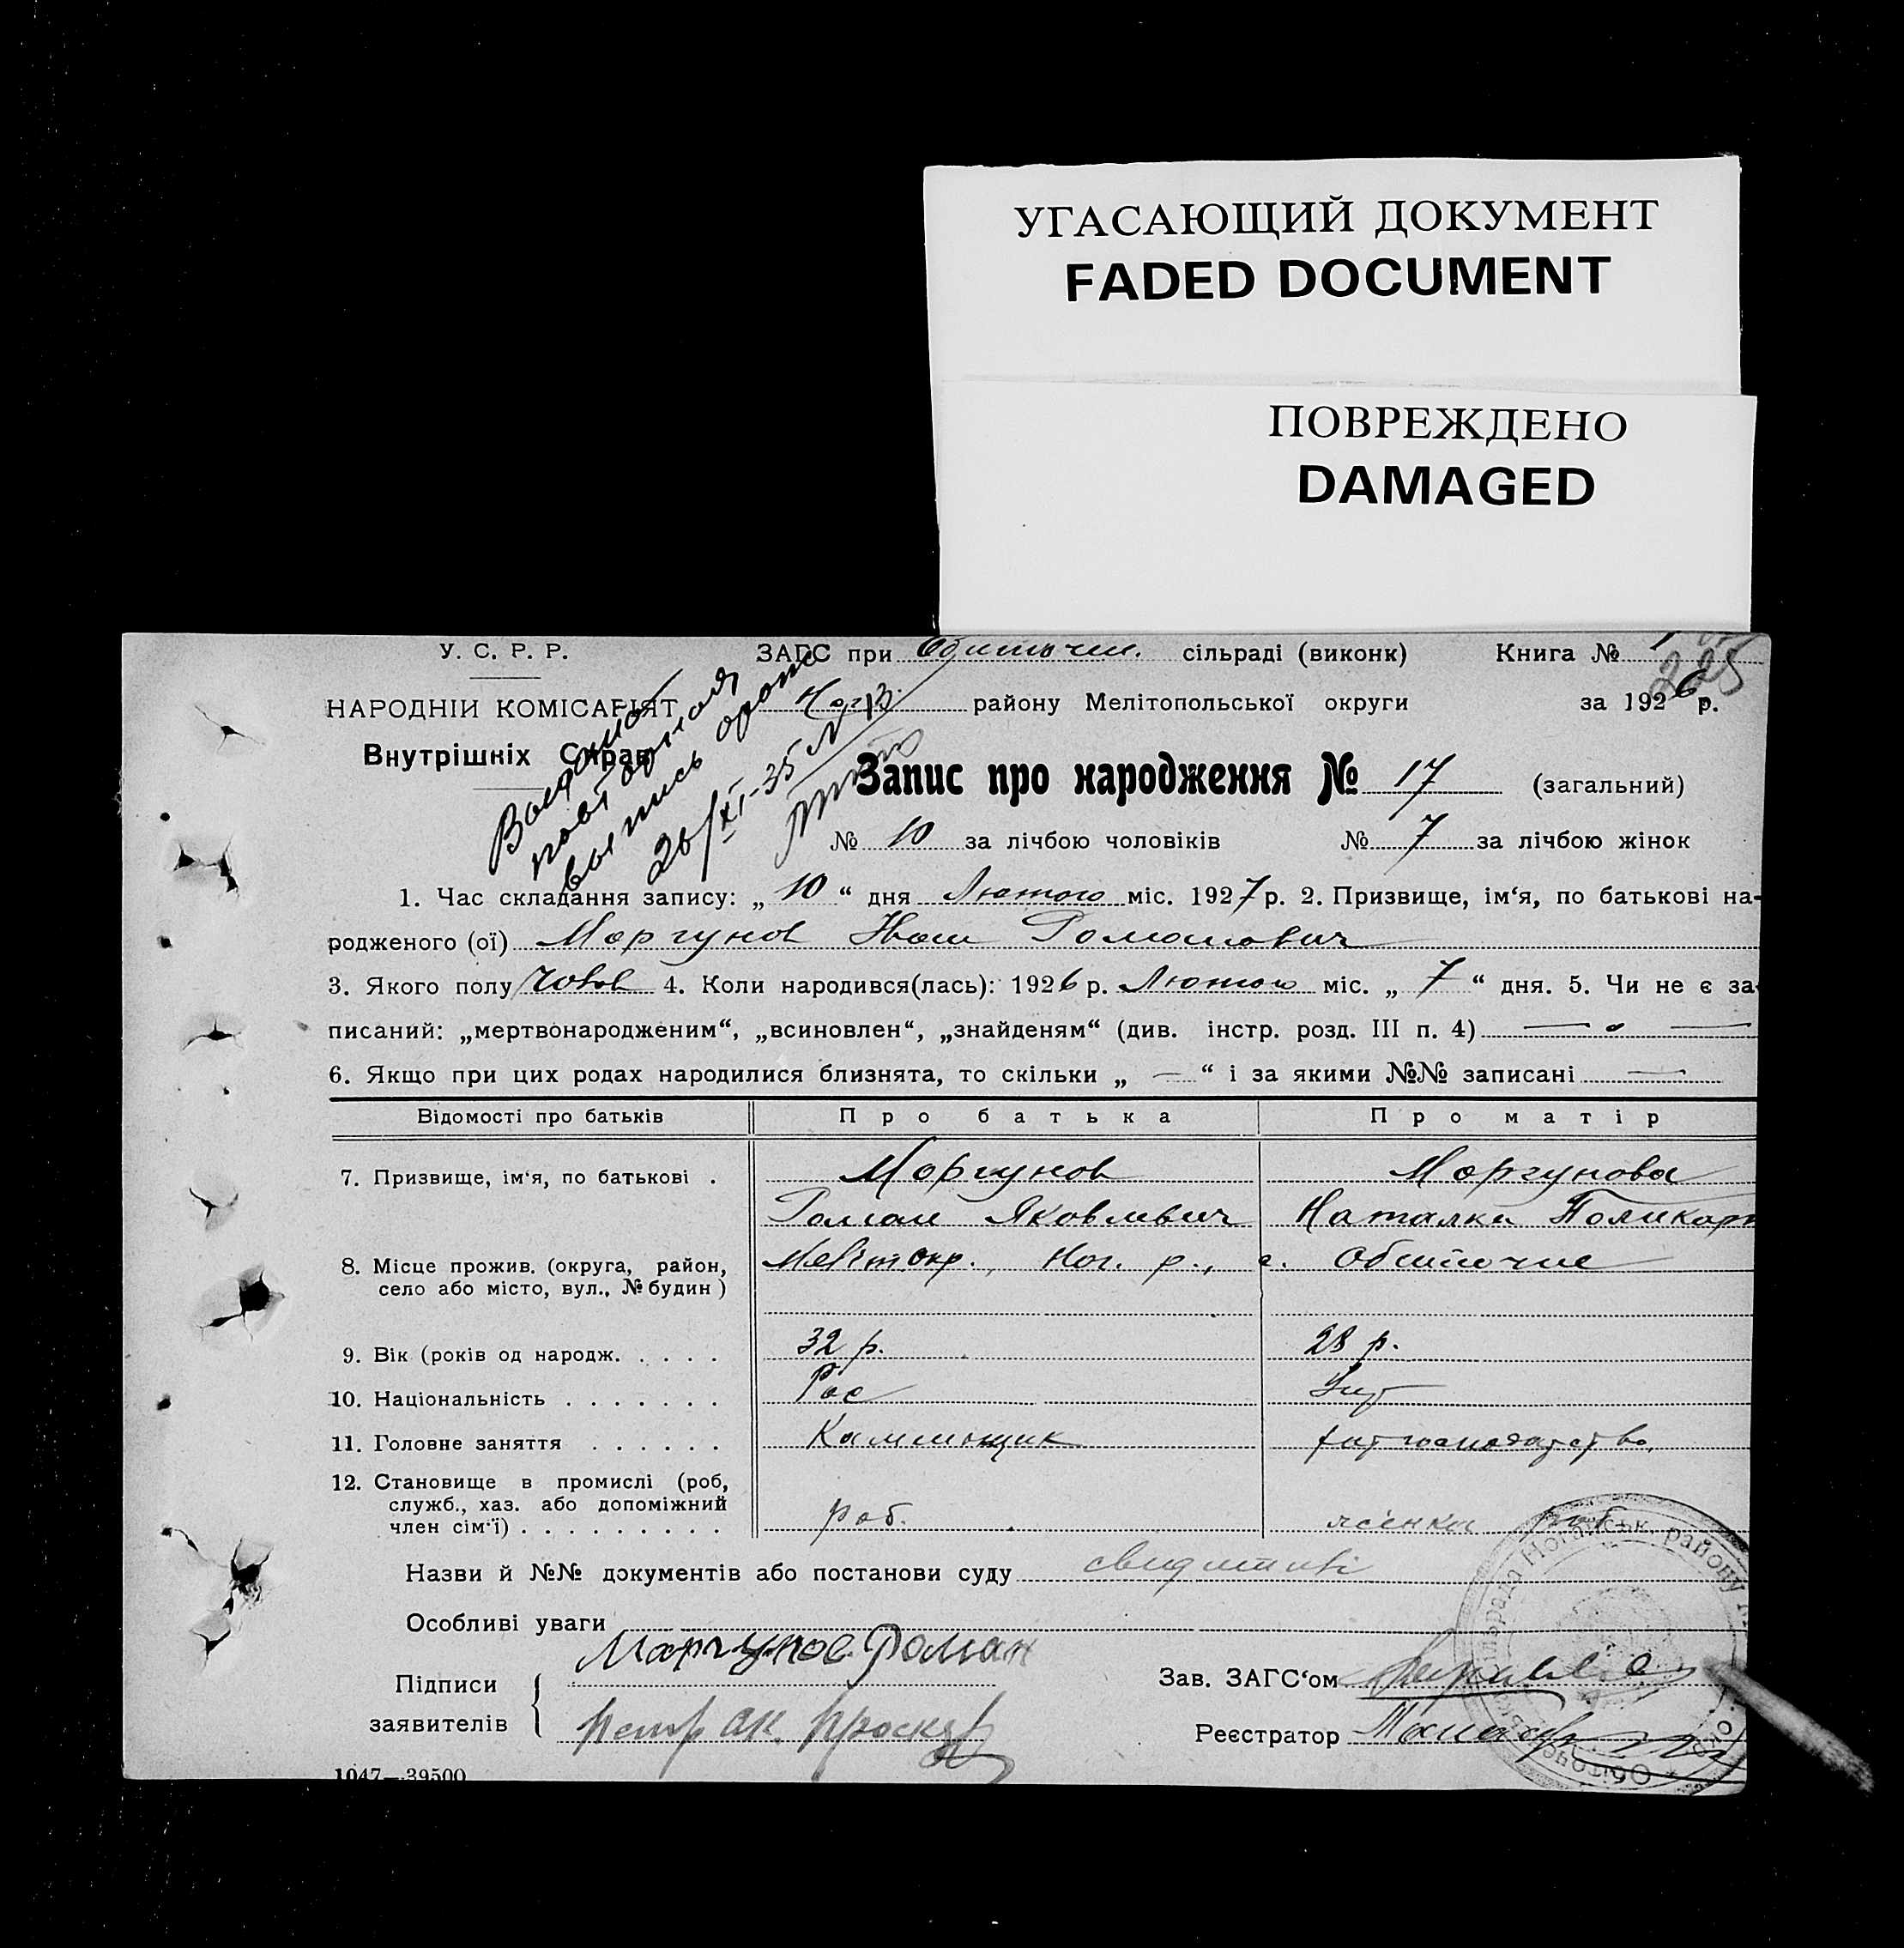 УГАСАЮЩИЙ ДОКУМЕНТ
FADED DOCUMENT
ПОВРЕЖДЕНО
DAMAGED
У. С. Р. Р.
ЗАГС при сільраді (виконк) Книга № 1
225
НАРОДНІЙ КОМІСАРІЯТ
Ног. району Мелітопольської округи за 1926 р.
Внутрішніх Справ
Выдана
повторная
выпись
26/XI-35
Запис про народження № 17 (загальний)
№ 10 за лічбою чоловіків № 7 за лічбою жінок
1. Час складання запису: „ 10 “ дня Лютого міс. 1927 р. 2. Призвище, ім‘я, по батькові на-
родженого (ої) Моргунов Иван Романович
3. Якого полу 4. Коли народився(лась): 1926 р. Лютого міс. „ 7 “ дня. 5. Чи не є за-
писаний: „мертвонародженим“, „всиновлен“, „знайденям“ (див. інстр. розд. III п. 4) — —
6. Якщо при цих родах народилися близнята, то скільки „ — “ і за якими №№ записані —
Відомості про батьків Про батька Про матір
7. Призвище, ім‘я, по батькові . Моргунов Моргунова
Роман Яковлевич Наталка Поликарп
8. Місце прожив. (округа, район, Меліт окр., Ног. р., с. Обиточне
село або місто, вул., № будин )
9. Вік (років од народж. . . . . 32 р. 28 р.
10. Національність . . . . . . . Рос Укр
11. Головне заняття . . . . . . Каменщик господарство
12. Становище в промислі (роб,
служб., хаз. або допоміжний
член сім‘ї) . . . . . . . . . роб.
Назви й №№ документів або постанови суду
Особливі уваги
Моргунов Роман
Підписи
заявителів
Зав. ЗАГС‘ом
Реєстратор
Ногайськ. району
1047—39500